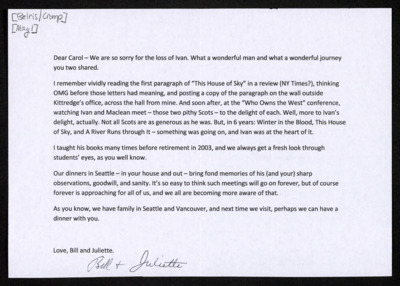 [Beiris/Cramp]
[May 1]
Dear Carol – We are so sorry for the loss of Ivan. What a wonderful man and what a wonderful journey
you two shared.
I remember vividly reading the first paragraph of "This House of Sky" in a review (NY Times?), thinking
OMG before those letters had meaning, and posting a copy of the paragraph on the wall outside
Kittredge's office, across the hall from mine. And soon after, at the "Who Owns the West" conference,
watching Ivan and Maclean meet – those two pithy Scots – to the delight of each. Well, more to Ivan's
delight, actually. Not all Scots are as generous as he was. But, in 6 years: Winter in the Blood, This House
of Sky, and A River Runs through It – something was going on, and Ivan was at the heart of it.
I taught his books many times before retirement in 2003, and we always get a fresh look through
students' eyes, as you well know.
Our dinners in Seattle – in your house and out – bring fond memories of his (and your) sharp
observations, goodwill, and sanity. It's so easy to think such meetings will go on forever, but of course
forever is approaching for all of us, and we all are becoming more aware of that.
As you know, we have family in Seattle and Vancouver, and next time we visit, perhaps we can have a
dinner with you.
Love, Bill and Juliette.
Bill + Juliette